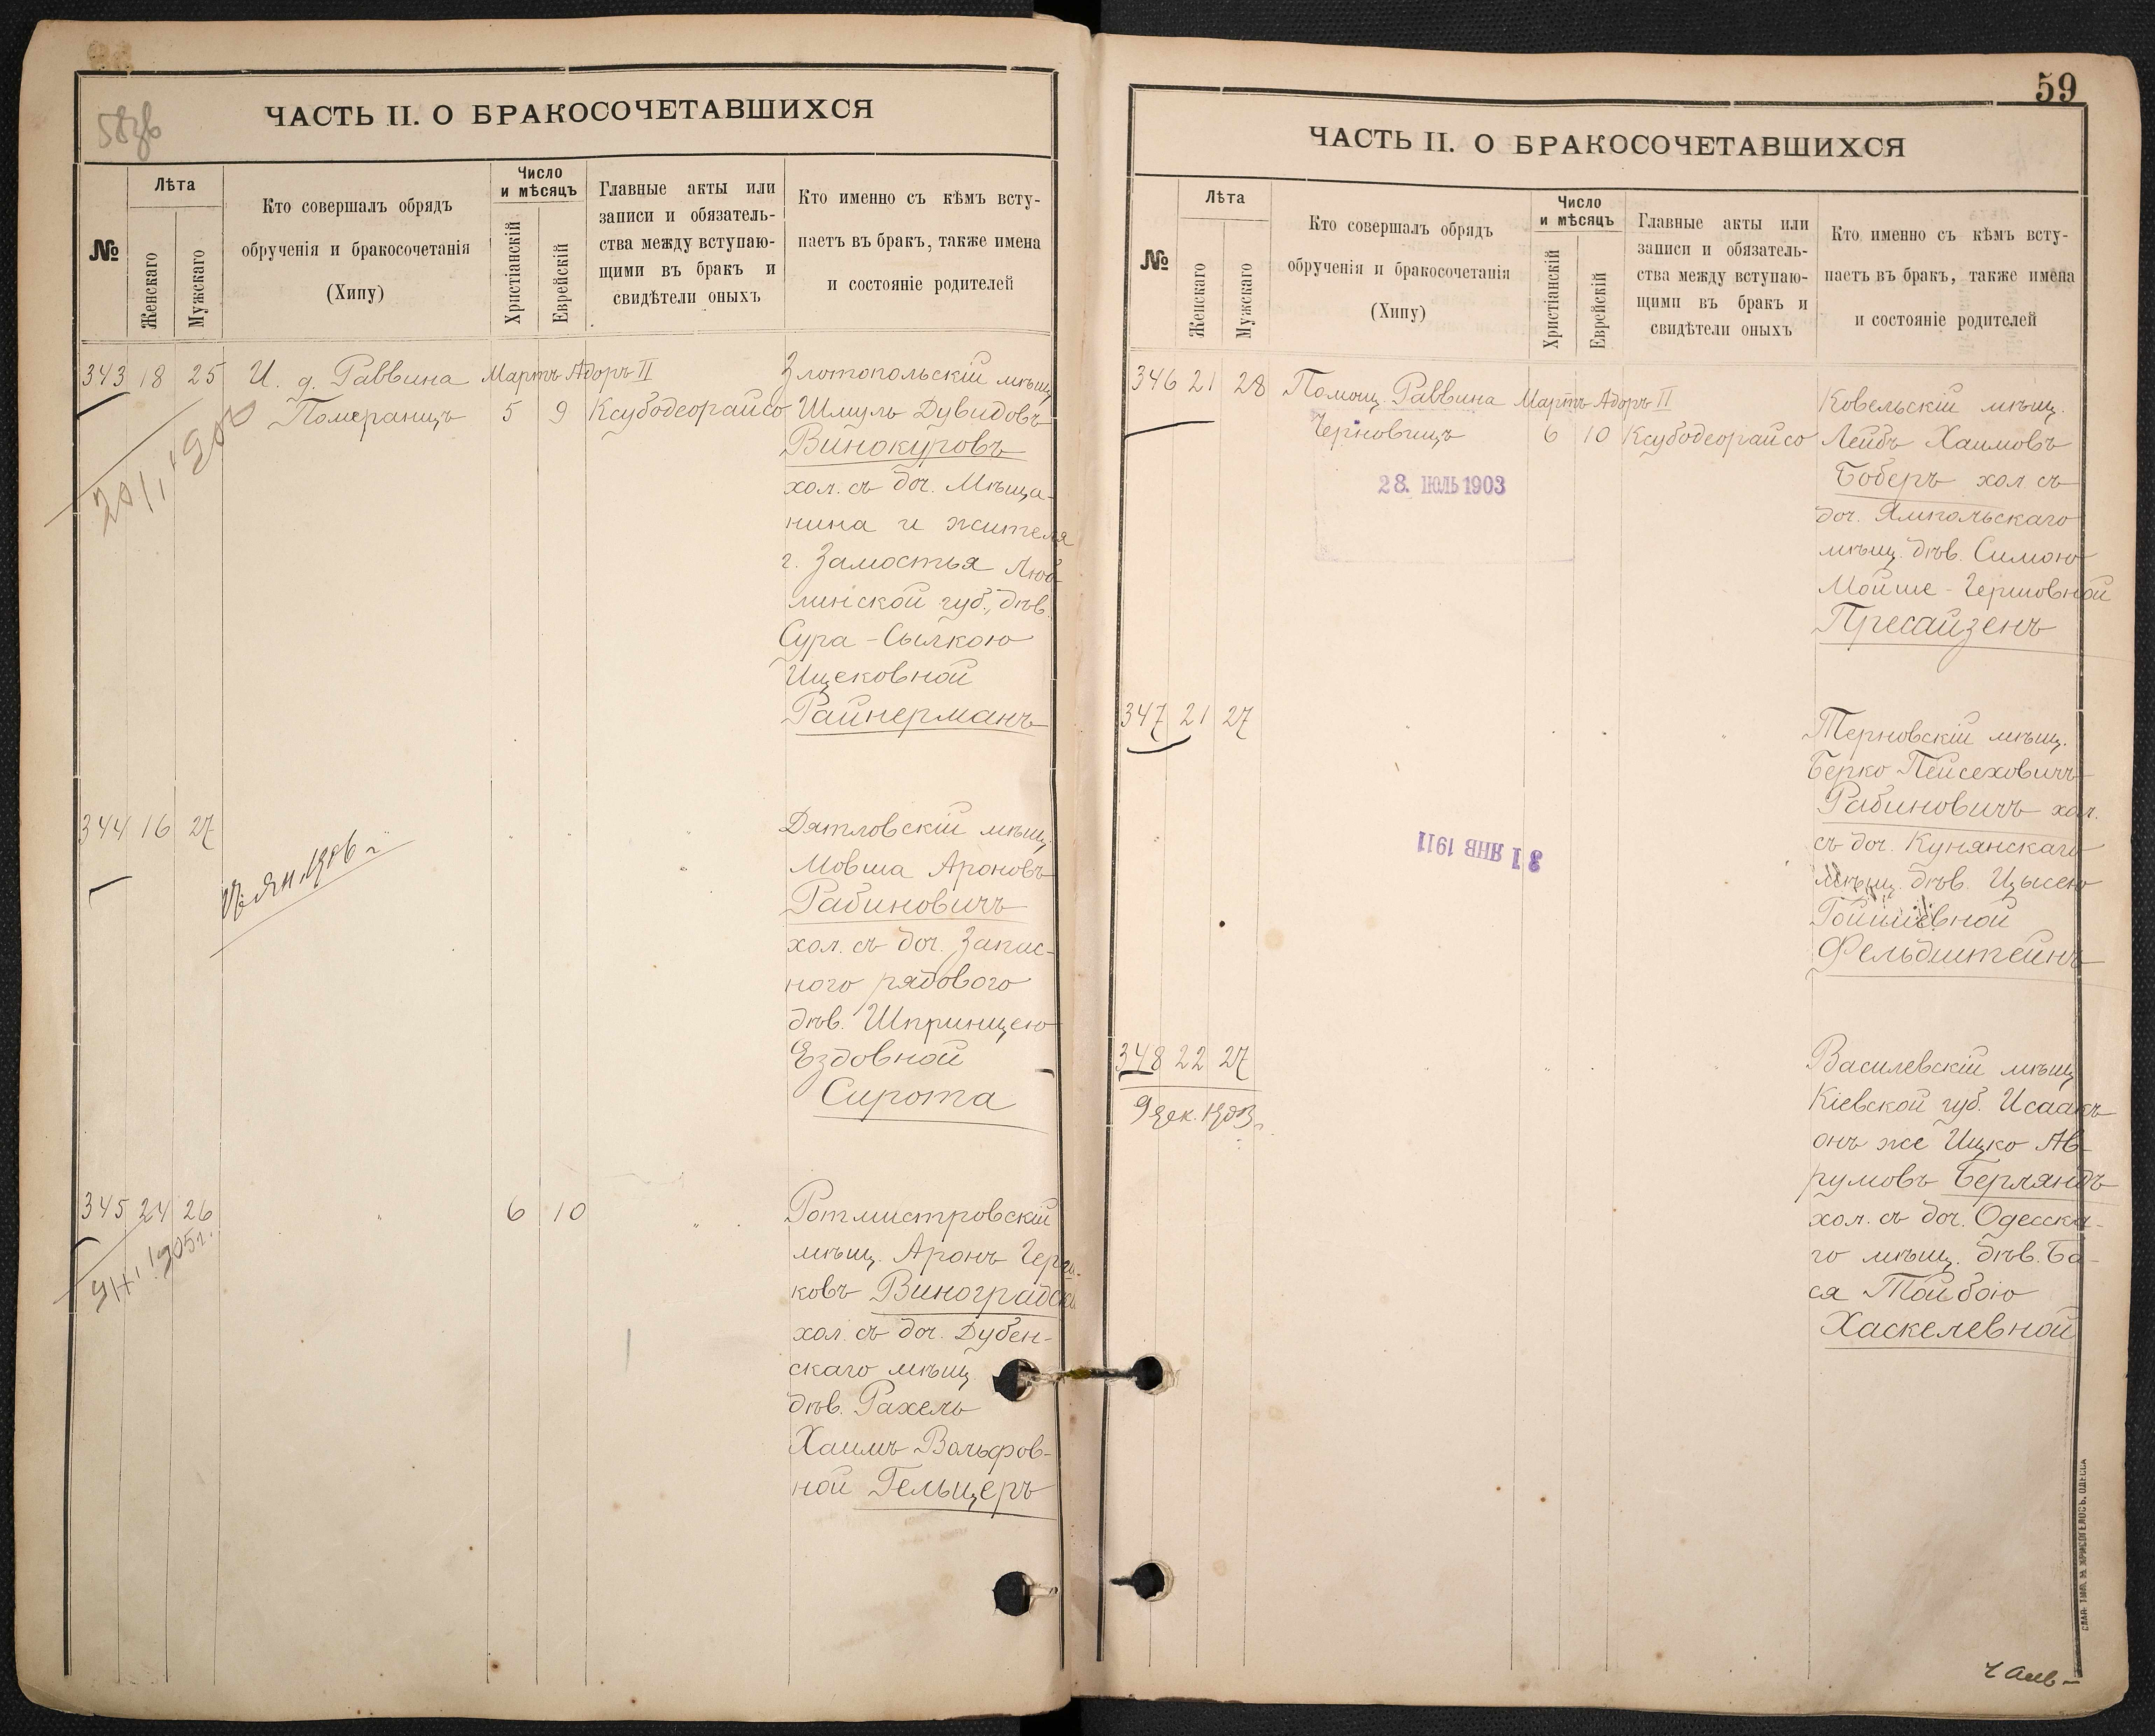 58 об
ЧАСТЬ II. О БРАКОСОЧЕТАВШИХСЯ
№
Лѣта
Женскаго
Мужскаго
Кто совершалъ обрядъ
обрученія и бракосочетанія
(Хипу)
Число
и мѣсяцъ
Христіанскій
Еврейскій
Главные акты или
записи и обязатель-
ства между вступаю-
щими въ бракъ и
свидѣтели оныхъ
Кто именно съ кѣмъ всту-
паетъ въ бракъ, также имена
и состояніе родителей
343 18 25 И. д. Раввина Мартъ Адоръ II Злотопольскій мѣщ.
Померанцъ 5 9 Ксубодеорайсо Шмуль Дувидовъ
Винокуровъ
хол. съ доч. Мѣща-
нина и жителя
г. Замостья Люб-
линской губ., дѣв.
Сура-Сылкою
Ицековной
Райнерманъ
344 16 27 Дятловскій мѣщ.
Мовша Ароновъ
Рабиновичъ
хол. съ доч. Запас-
ного рядового
дѣв. Шпринцею
Ездовной
Сирота
345 24 26 6 10 Ротмистровскій
мѣщ. Аронъ Герш-
ковъ Виноградскій
хол. съ доч. Дубен-
скаго мѣщ.
дѣв. Рахель
Хаимъ Вольфов-
ной Гельцеръ
59
ЧАСТЬ II. О БРАКОСОЧЕТАВШИХСЯ
№
Лѣта
Женскаго
Мужскаго
Кто совершалъ обрядъ
обрученія и бракосочетанія
(Хипу)
Число
и мѣсяцъ
Христіанскій
Еврейскій
Главные акты или
записи и обязатель-
ства между вступаю-
щими въ бракъ и
свидѣтели оныхъ
Кто именно съ кѣмъ всту-
паетъ въ бракъ, также имена
и состояніе родителей
346 21 28 Помощ. Раввина Мартъ Адоръ II Ковельскій мѣщ.
Черновицъ 6 10 Ксубодеорайсо Лейбъ Хаимовъ
28. ІЮЛЬ 1903
Боберъ хол. съ
доч. Ямпольскаго
мѣщ. дѣв. Симою
Мойше-Гершовной
Пресайзенъ
347 21 27 Терновскій мѣщ.
Берко Пейсеховичъ
Рабиновичъ хол.
31 ЯНВ 1911
съ доч. Кунянскаго
мѣщ. дѣв. Цысею
Фельдштейнъ
348 22 27 Василевскій мѣщ.
9 Дек. 1903 г.
Кіевской губ. Исаакъ
онъ же Ицко Ав-
румовъ Берляндъ
хол. съ доч. Одесска-
го мѣщ. дѣв. Ба-
ся Тойбою
Хаскелевной